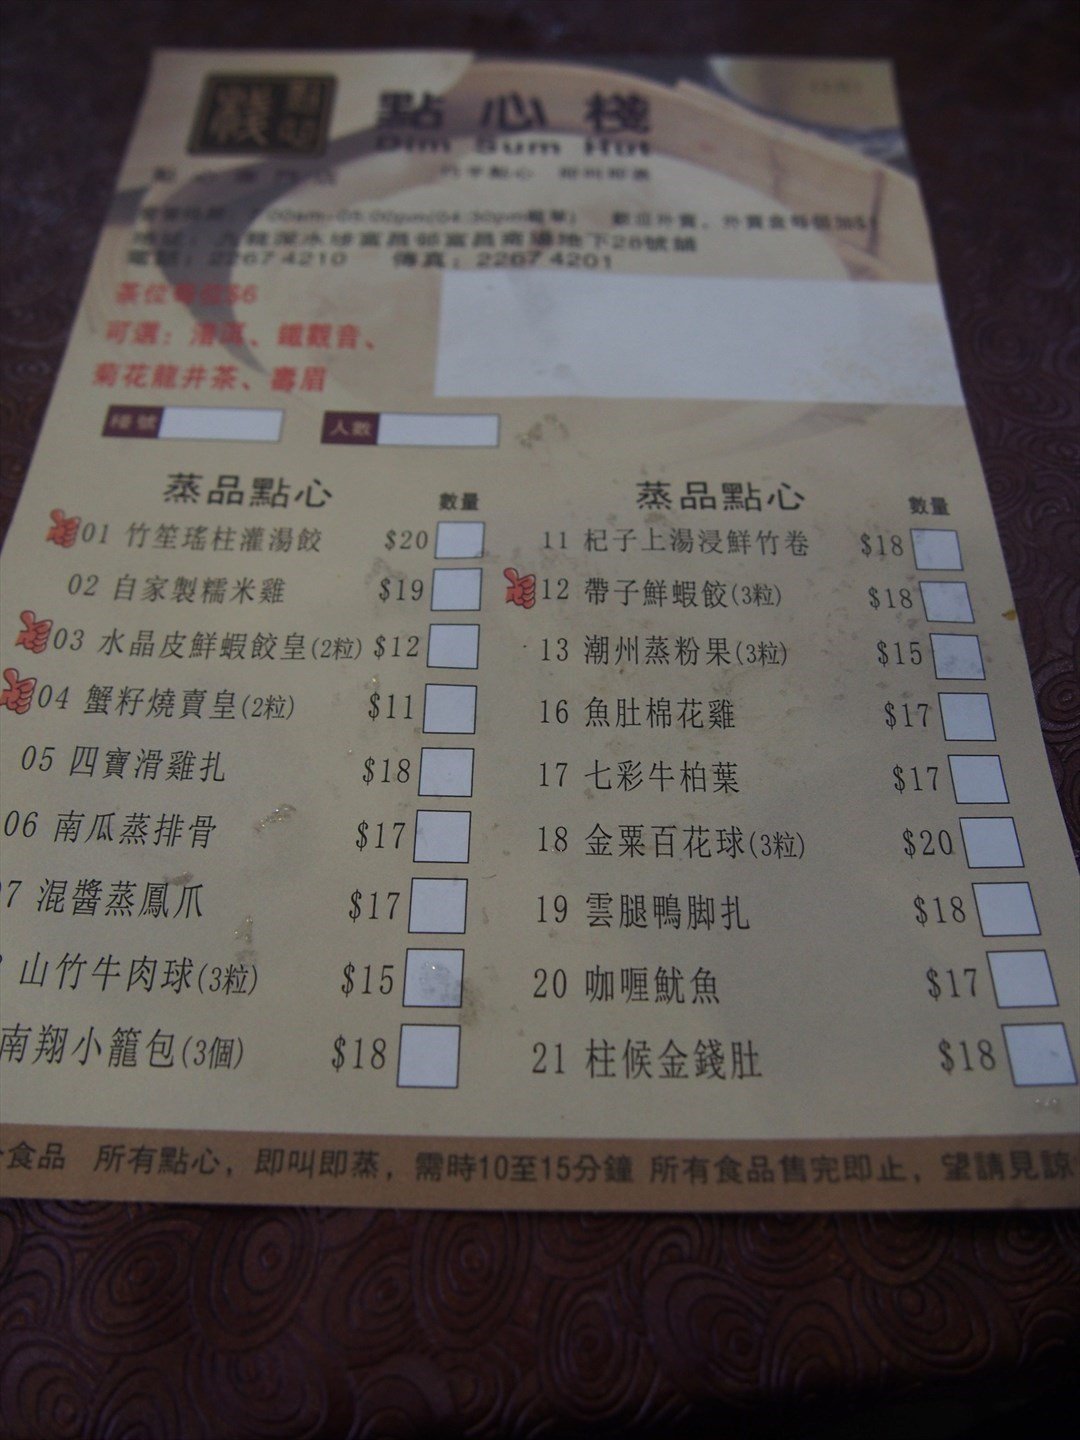 點心棧
點心棧
Dim Sum Hut
竹竿點心 即叫即蒸
00am-05:00pm(04:30pm 歡迎外賣，外賣盒每個加$1
地址：九龍深水埗富昌邨富昌商場地下28號舖
電話：2267 4210 傳真：2267 4201
茶位每位$6
可選：普洱、鐵觀音、
菊花龍井茶、壽眉
檯號 人數
蒸品點心 數量
01 竹笙瑤柱灌湯餃 $20
02 自家製糯米雞 $19
03 水晶皮鮮蝦餃皇(2粒) $12
04 蟹籽燒賣皇(2粒) $11
05 四寶滑雞扎 $18
06 南瓜蒸排骨 $17
7 混醬蒸鳳爪 $17
山竹牛肉球(3粒) $15
南翔小籠包(3個) $18
蒸品點心 數量
11 杞子上湯浸鮮竹卷 $18
12 帶子鮮蝦餃(3粒) $18
13 潮州蒸粉果(3粒) $15
16 魚肚棉花雞 $17
17 七彩牛柏葉 $17
18 金粟百花球(3粒) $20
19 雲腿鴨脚扎 $18
20 咖喱魷魚 $17
21 柱候金錢肚 $18
食品 所有點心，即叫即蒸，需時10至15分鐘 所有食品售完即止，望請見諒